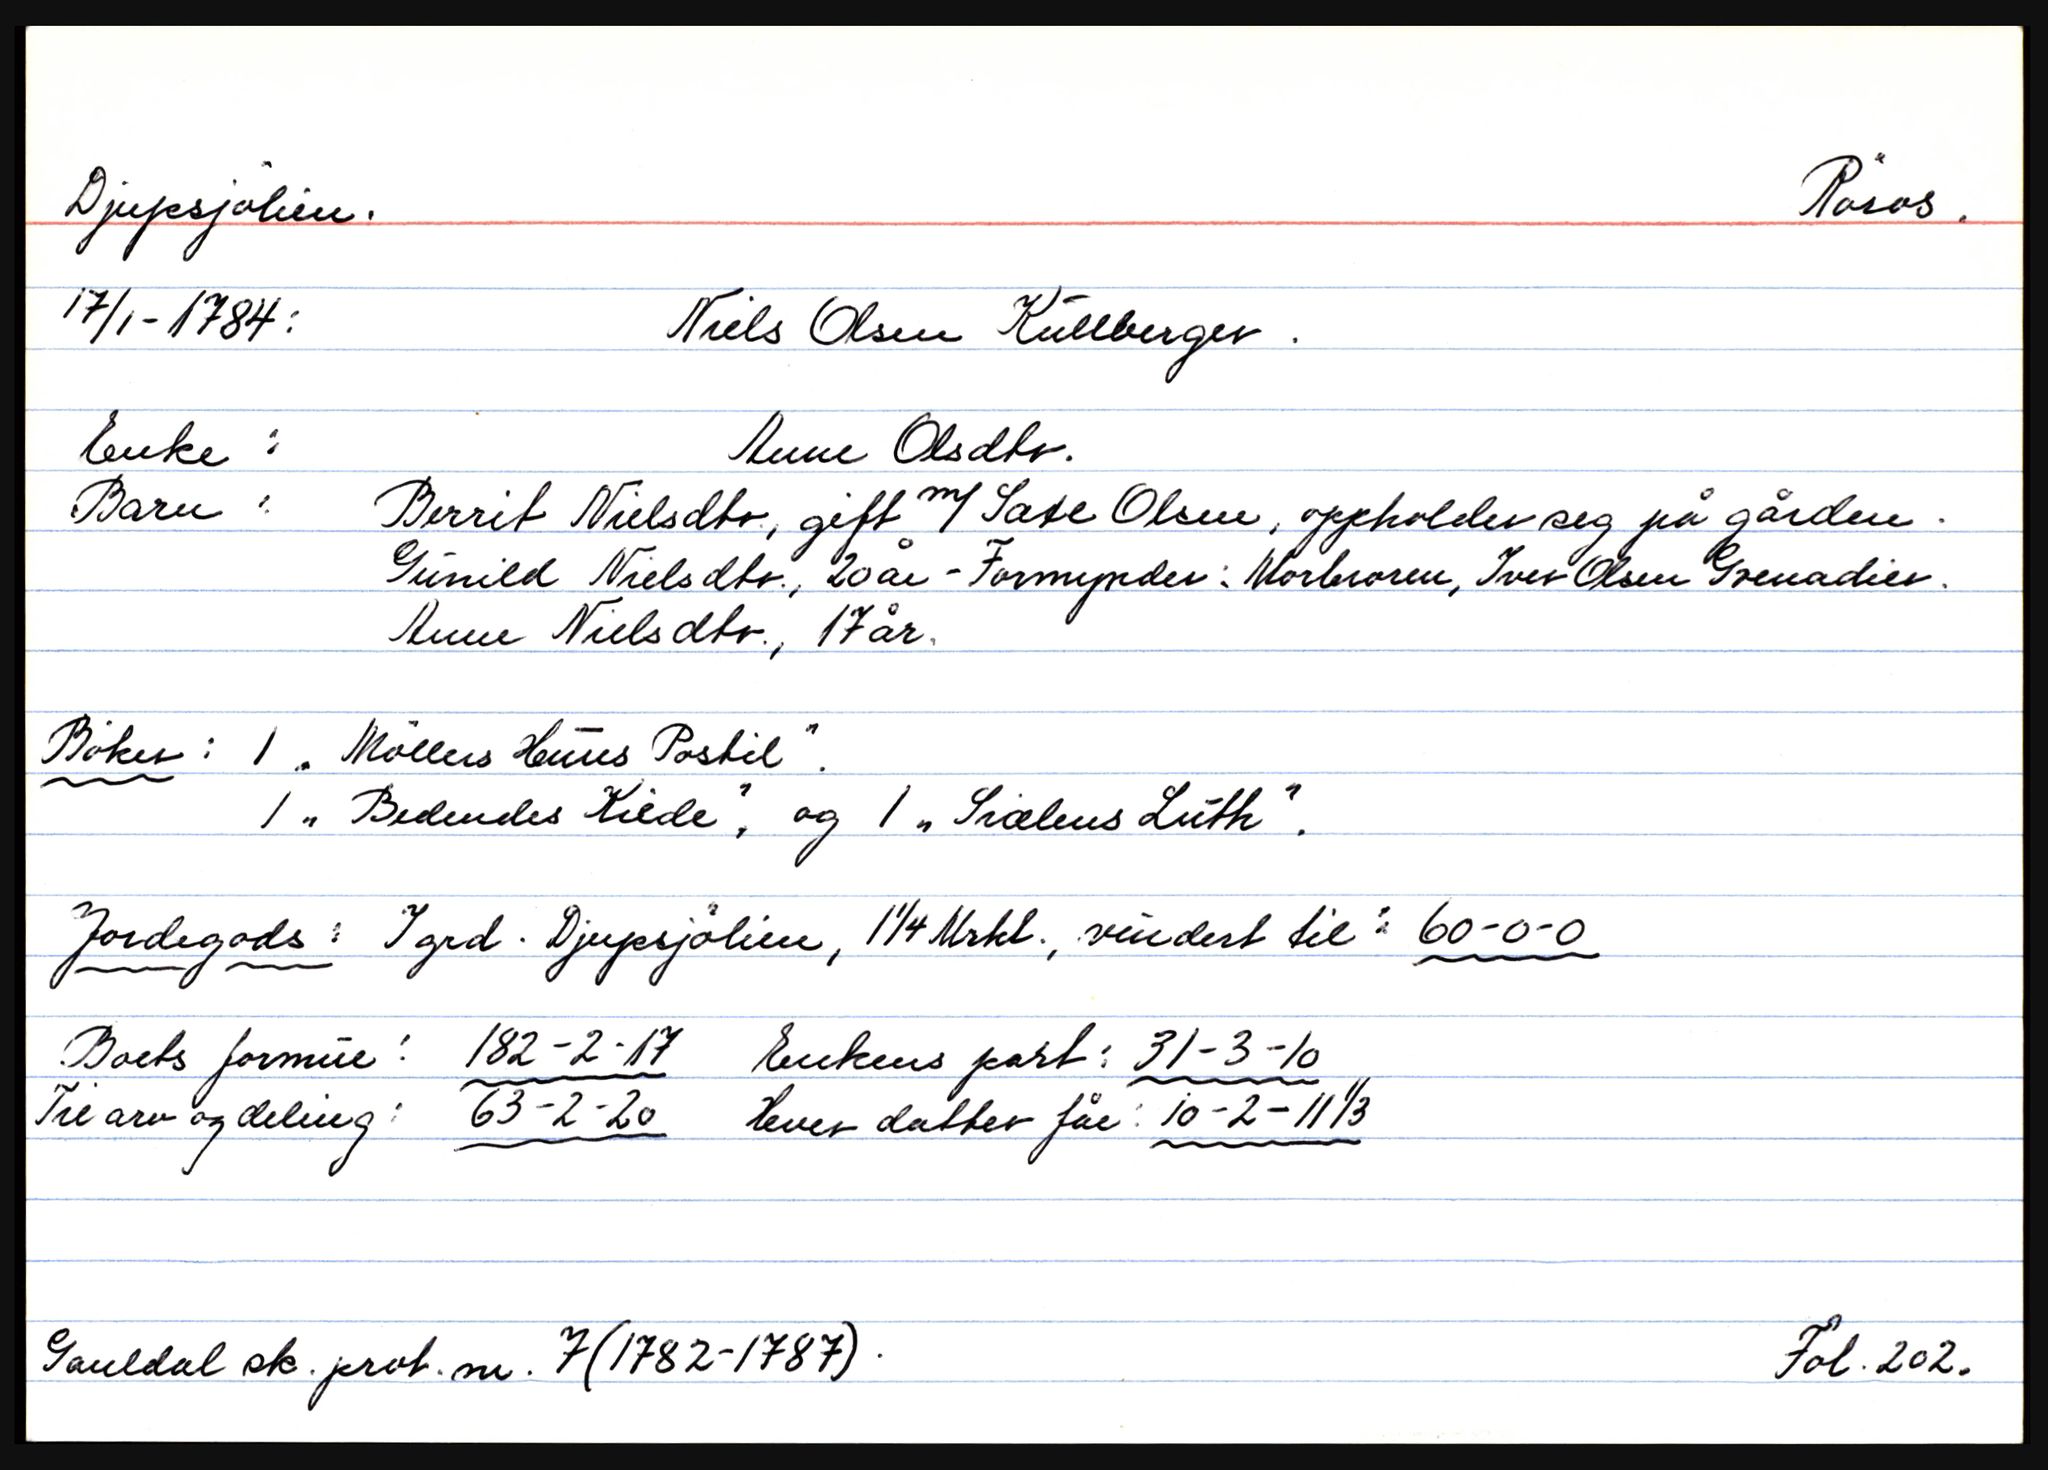 Djupsjölien. Röros.
17/1-1784: Niels Olsen Küllberger.
Enke: Anne Olsdtr.
Barn: Berrit Nielsdtr., gift m/ Saxe Olsen, oppholder seg på gården.
Günild Nielsdtr., 20 år - Formynder: Morbroren, Iver Olsen Grenadier.
Anne Nielsdtr., 17 år.
Böker: 1 „Möllers Huus Postil".
1 „Bedendes Kilde", og 1 „Siælens Lüth".
Jordegods: I grd. Djupsjölien, 1 1/4 Mrkl., vürdert til: 60-0-0
Boets formüe: 182-2-17 Enkens part: 31-3-10
Til arv og deling: 63-2-20 Hver datter får: 10-2-11 1/3
Gauldal sk. prot. nr. 7 (1782-1787). Fol. 202.